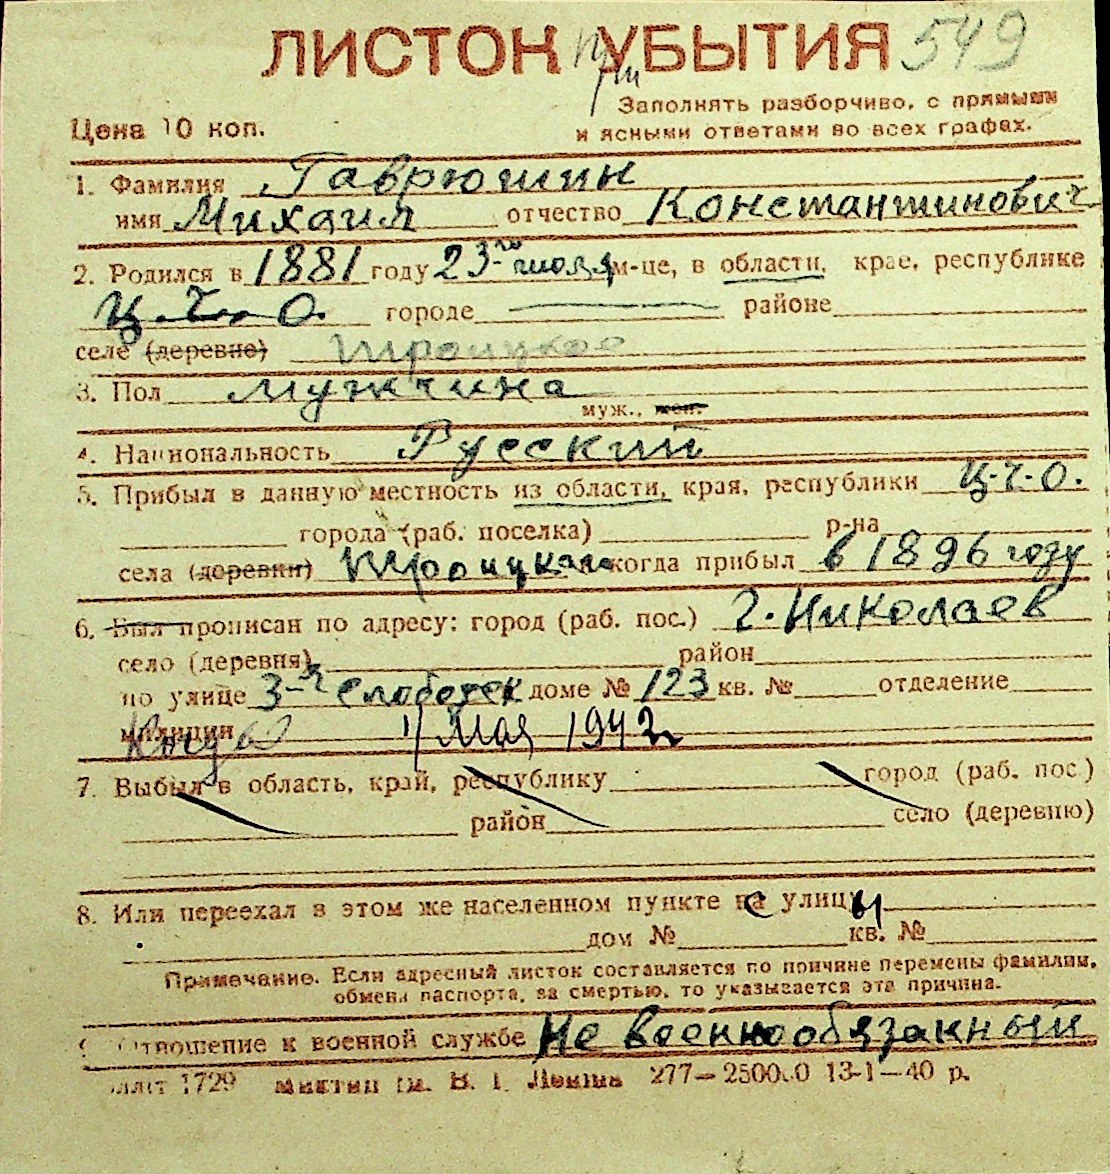 ЛИСТОК УБЫТИЯ 549
Заполнять разборчиво, с прямыми
Цена 10 коп. и ясными ответами во всех графах.
1. Фамилия Гаврюшин
имя Михаил отчество Константинович
2. Родился в 1881 году 23-го июля м-це, в области, крае, республике
Ц.Ч.О. городе районе
селе (деревне) Троицкое
3. Пол мужчина
муж., жен.
4. Национальность Русский
5. Прибыл в данную местность из области, края, республики Ц.Ч.О.
города (раб. поселка) р-на
села (деревни) Троицкого когда прибыл в 1896 году
6. Был прописан по адресу: город (раб. пос.) г. Николаев
село (деревня) район
по улице 3-я Слободск доме № 123 кв. № отделение
милиции 4 Мая 1942 г
7. Выбыл в область, край, республику город (раб. пос.)
район село (деревню)
8. Или переехал в этом же населенном пункте с улицы
дом № кв. №
Примечание. Если адресный листок составляется по причине перемены фамилии,
обмена паспорта, за смертью, то указывается эта причина.
Отношение к военной службе Не военнообязанный
1729 В. И. Ленина 277—250000 13-1—40 р.